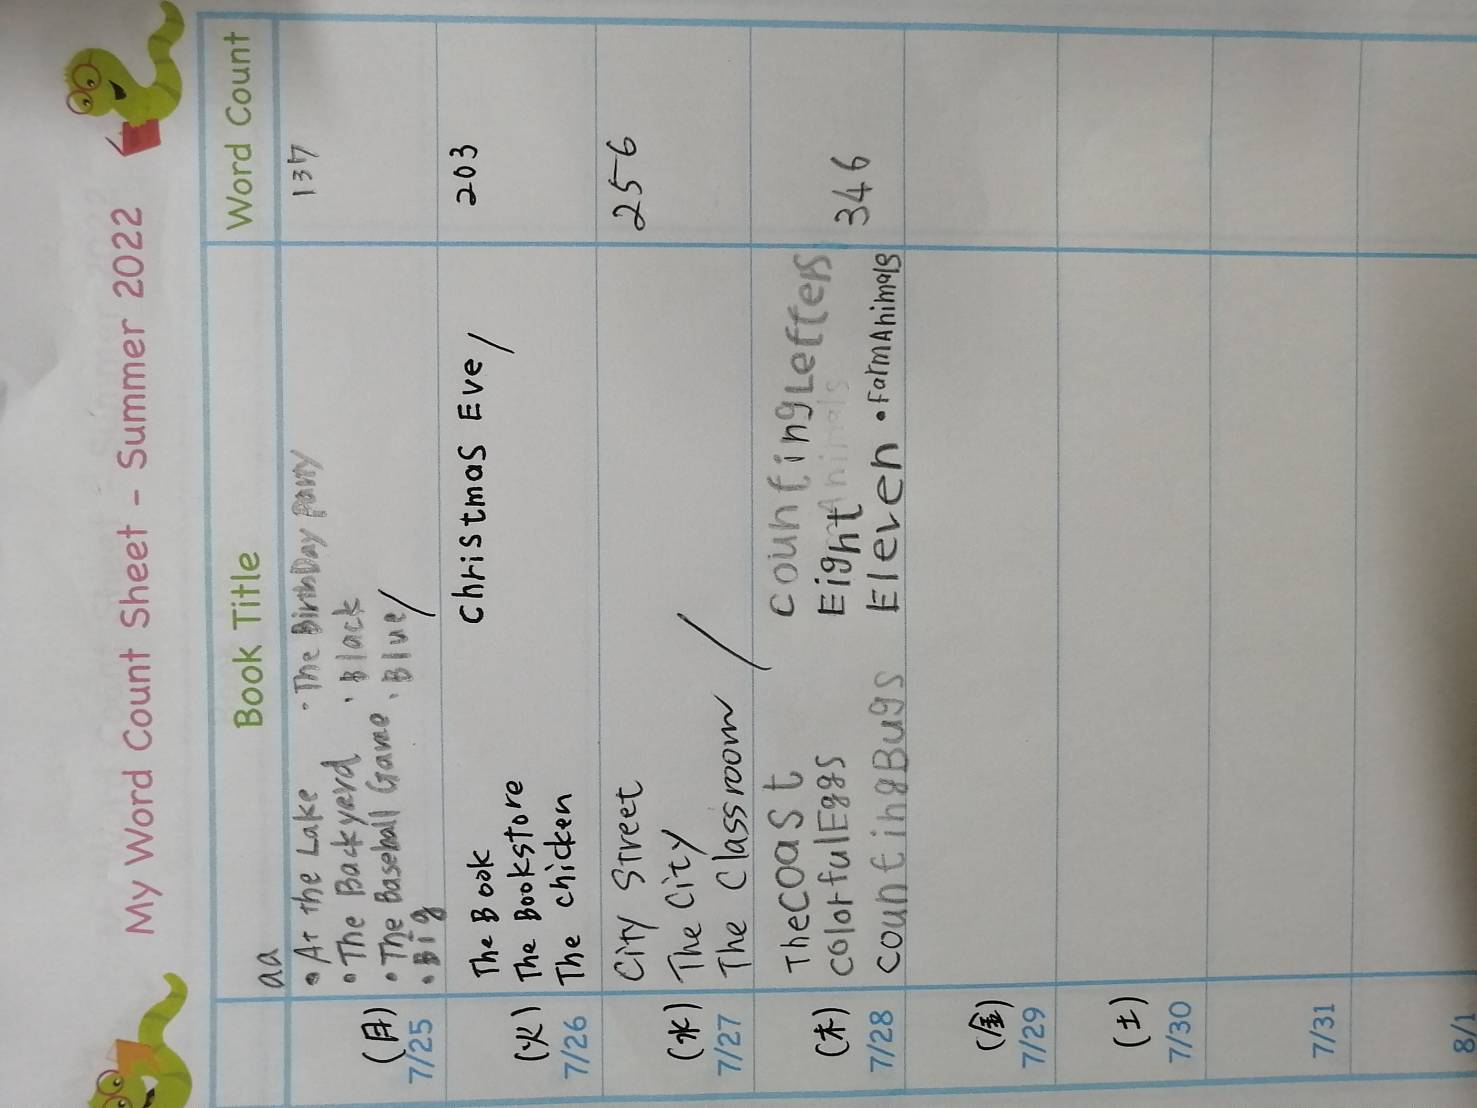 My Word Count Sheet - Summer 2022
Book Title Word Count
aa
(月) 7/25
• At the Lake · The BirthDay Party 137
• The Backyard · Black
• The Baseball Game · Blue /
• Big
(火) 7/26
The Book Christmas Eve / 203
The Bookstore
The chicken
(水) 7/27
City Street 256
The City
The Classroom /
(木) 7/28
TheCOASt CountingLetters
ColorfulEggs Eight 346
CountingBugs Eleven • FarmAnimals
(金) 7/29
(土) 7/30
7/31
8/1